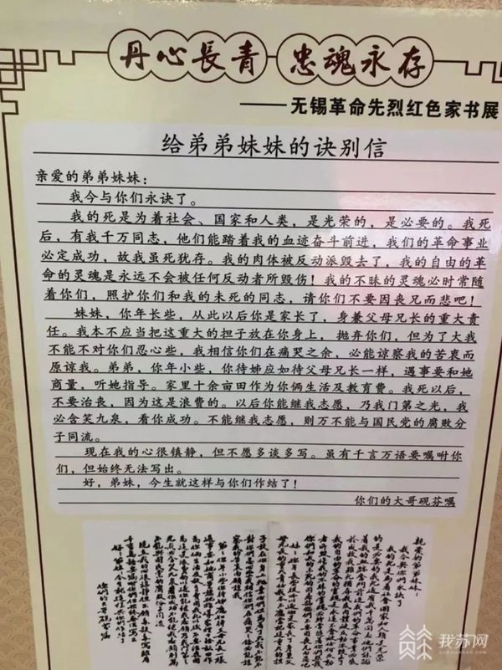 丹心長青 忠魂永存
——无锡革命先烈红色家书展
给弟弟妹妹的诀别信
亲爱的弟弟妹妹：
我今与你们永诀了。
我的死是为着社会、国家和人类，是光荣的，是必要的。我死
后，有我千万同志，他们能踏着我的血迹奋斗前进，我们的革命事业
必定成功，故我虽死犹存。我的肉体被反动派毁去了，我的自由的革
命的灵魂是永远不会被任何反动者所毁伤！我的不昧的灵魂必时常随
着你们，照护你们和我的未死的同志，请你们不要因丧兄而悲吧！
妹妹，你年长些，从此以后你是家长了，身兼父母兄长的重大责
任。我本不应当把这重大的担子放在你身上，抛弃你们，但为了大我
不能不对你们忍心些，我相信你们在痛哭之余，必能谅察我的苦衷而
原谅我。弟弟，你年小些，你待姊应如待父母兄长一样，遇事要和她
商量，听她指导。家里十余亩田作为你俩生活及教育费。我死以后，
不要治丧，因为这是浪费的。以后你能继我志愿，乃我门第之光，我
必含笑九泉，看你成功。不能继我志愿，则万不能与国民党的腐败分
子同流。
现在我的心很镇静，但不愿多谈多写。虽有千言万语要嘱咐你
们，但始终无法写出。
好，弟妹，今生就这样与你们作结了！
你们的大哥砚芬嘱
我苏网